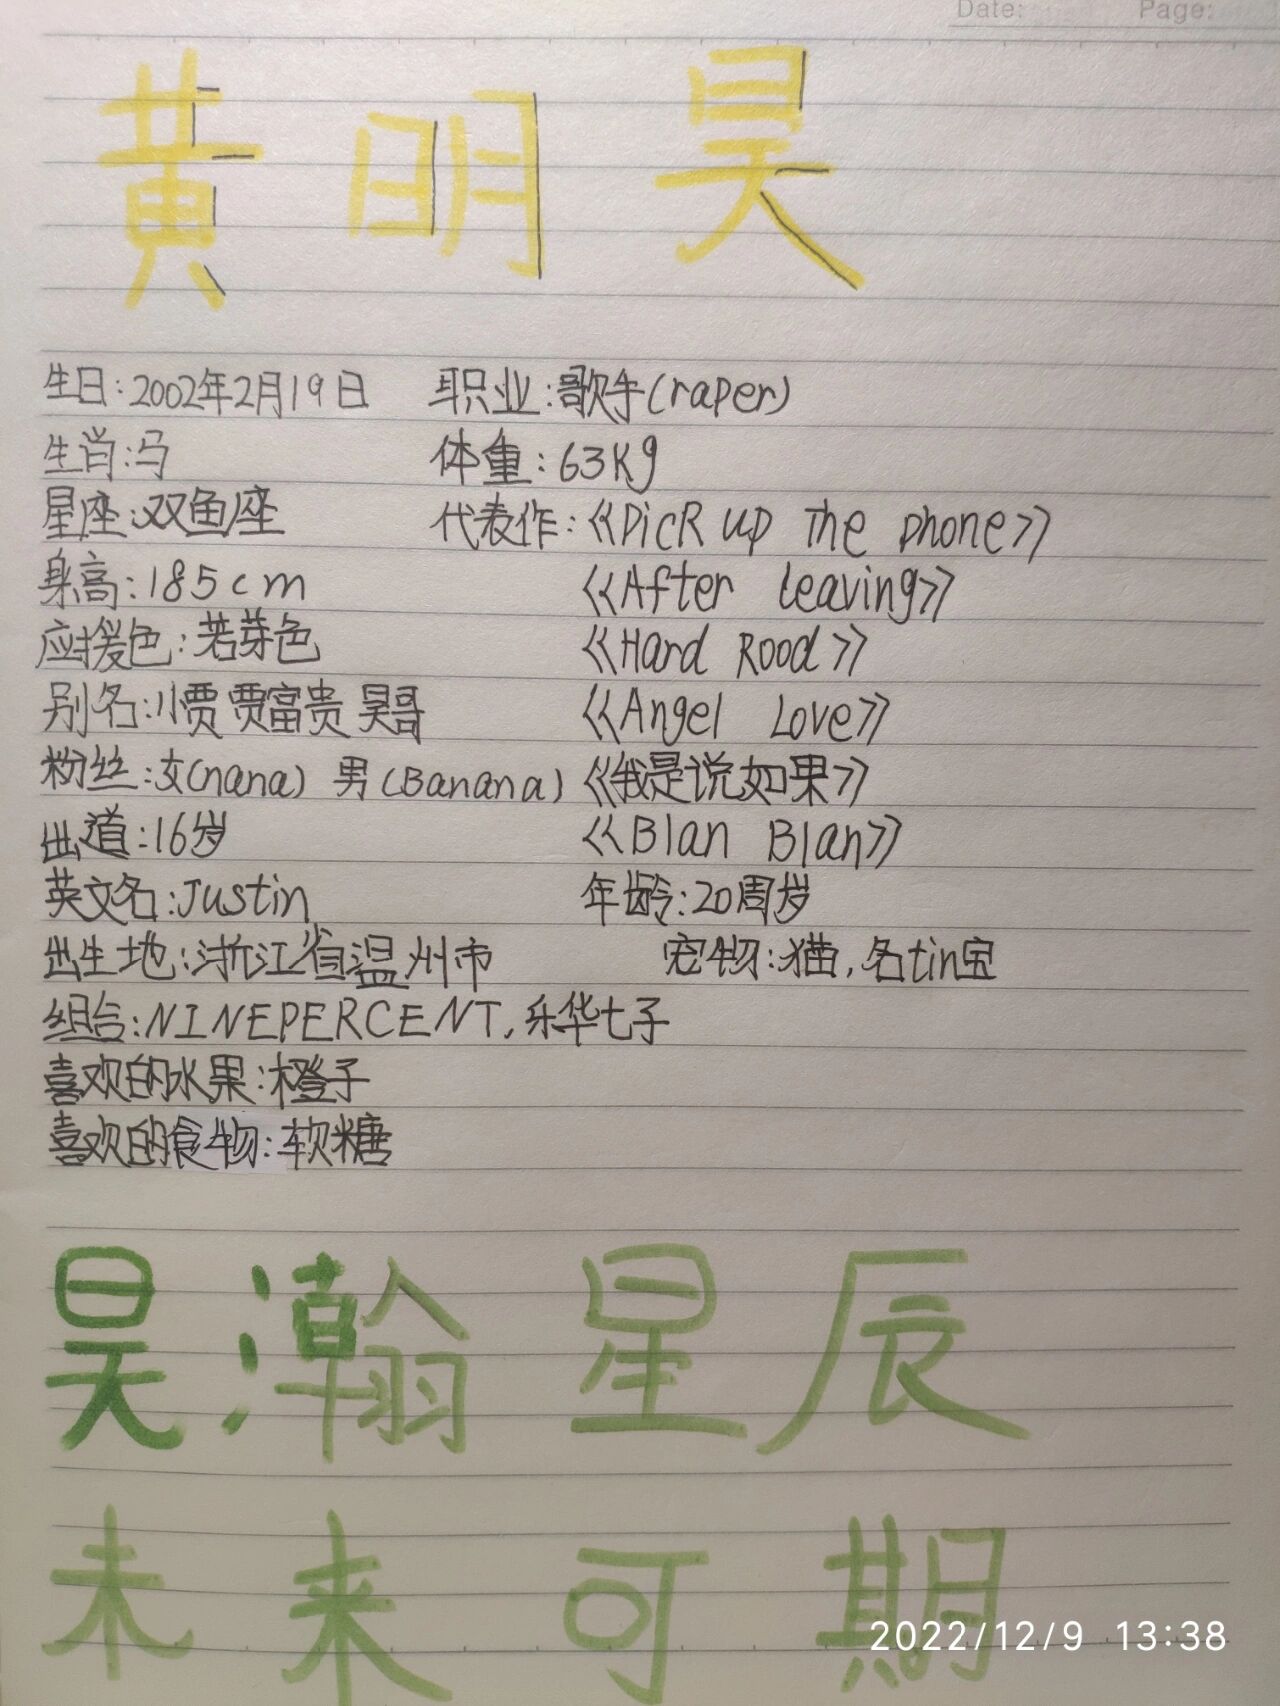 Date: Page:
黄明昊
生日:2002年2月19日 职业:歌手(raper)
生肖:马 体重:63Kg
星座:双鱼座 代表作:《PicR up The phone》
身高:185cm 《After leaving》
应援色:若芽色 《Hard Rood》
别名:小贾 贾富贵 昊哥 《Angel Love》
粉丝:女(nana) 男(Banana) 《我是说如果》
出道:16岁 《Blan Blan》
英文名:Justin 年龄:20周岁
出生地:浙江省温州市 宠物:猫,名tin宝
组合:NINEPERCENT,乐华七子
喜欢的水果:橙子
喜欢的食物:软糖
昊瀚星辰
未来可期
2022/12/9 13:38